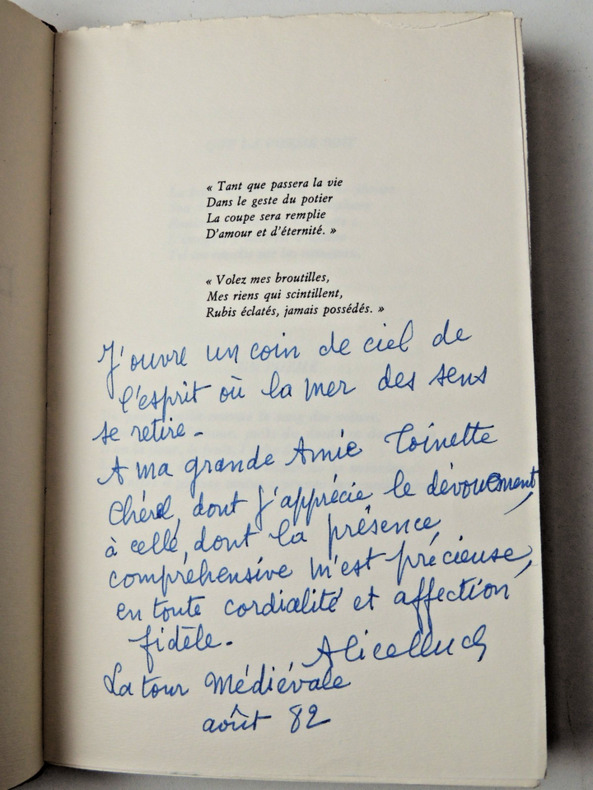 « Tant que passera la vie
Dans le geste du potier
La coupe sera remplie
D'amour et d'éternité. »
« Volez mes broutilles,
Mes riens qui scintillent,
Rubis éclatés, jamais possédés. »
J'ouvre un coin de ciel de
l'esprit où la mer des sens
se retire -
A ma grande Amie Toinette
Chérel, dont j'apprécie le dévouement,
à celle, dont la présence
compréhensive m'est précieuse,
en toute cordialité et affection
fidèle -
La tour Médiévale
août 82